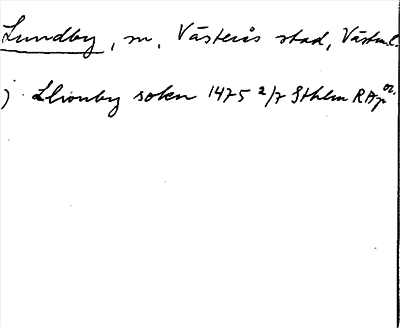 Lundby, sn, Västerås stad, Västml.
j Lhionby sokn 1475 2/7 Sthlm RAp or.